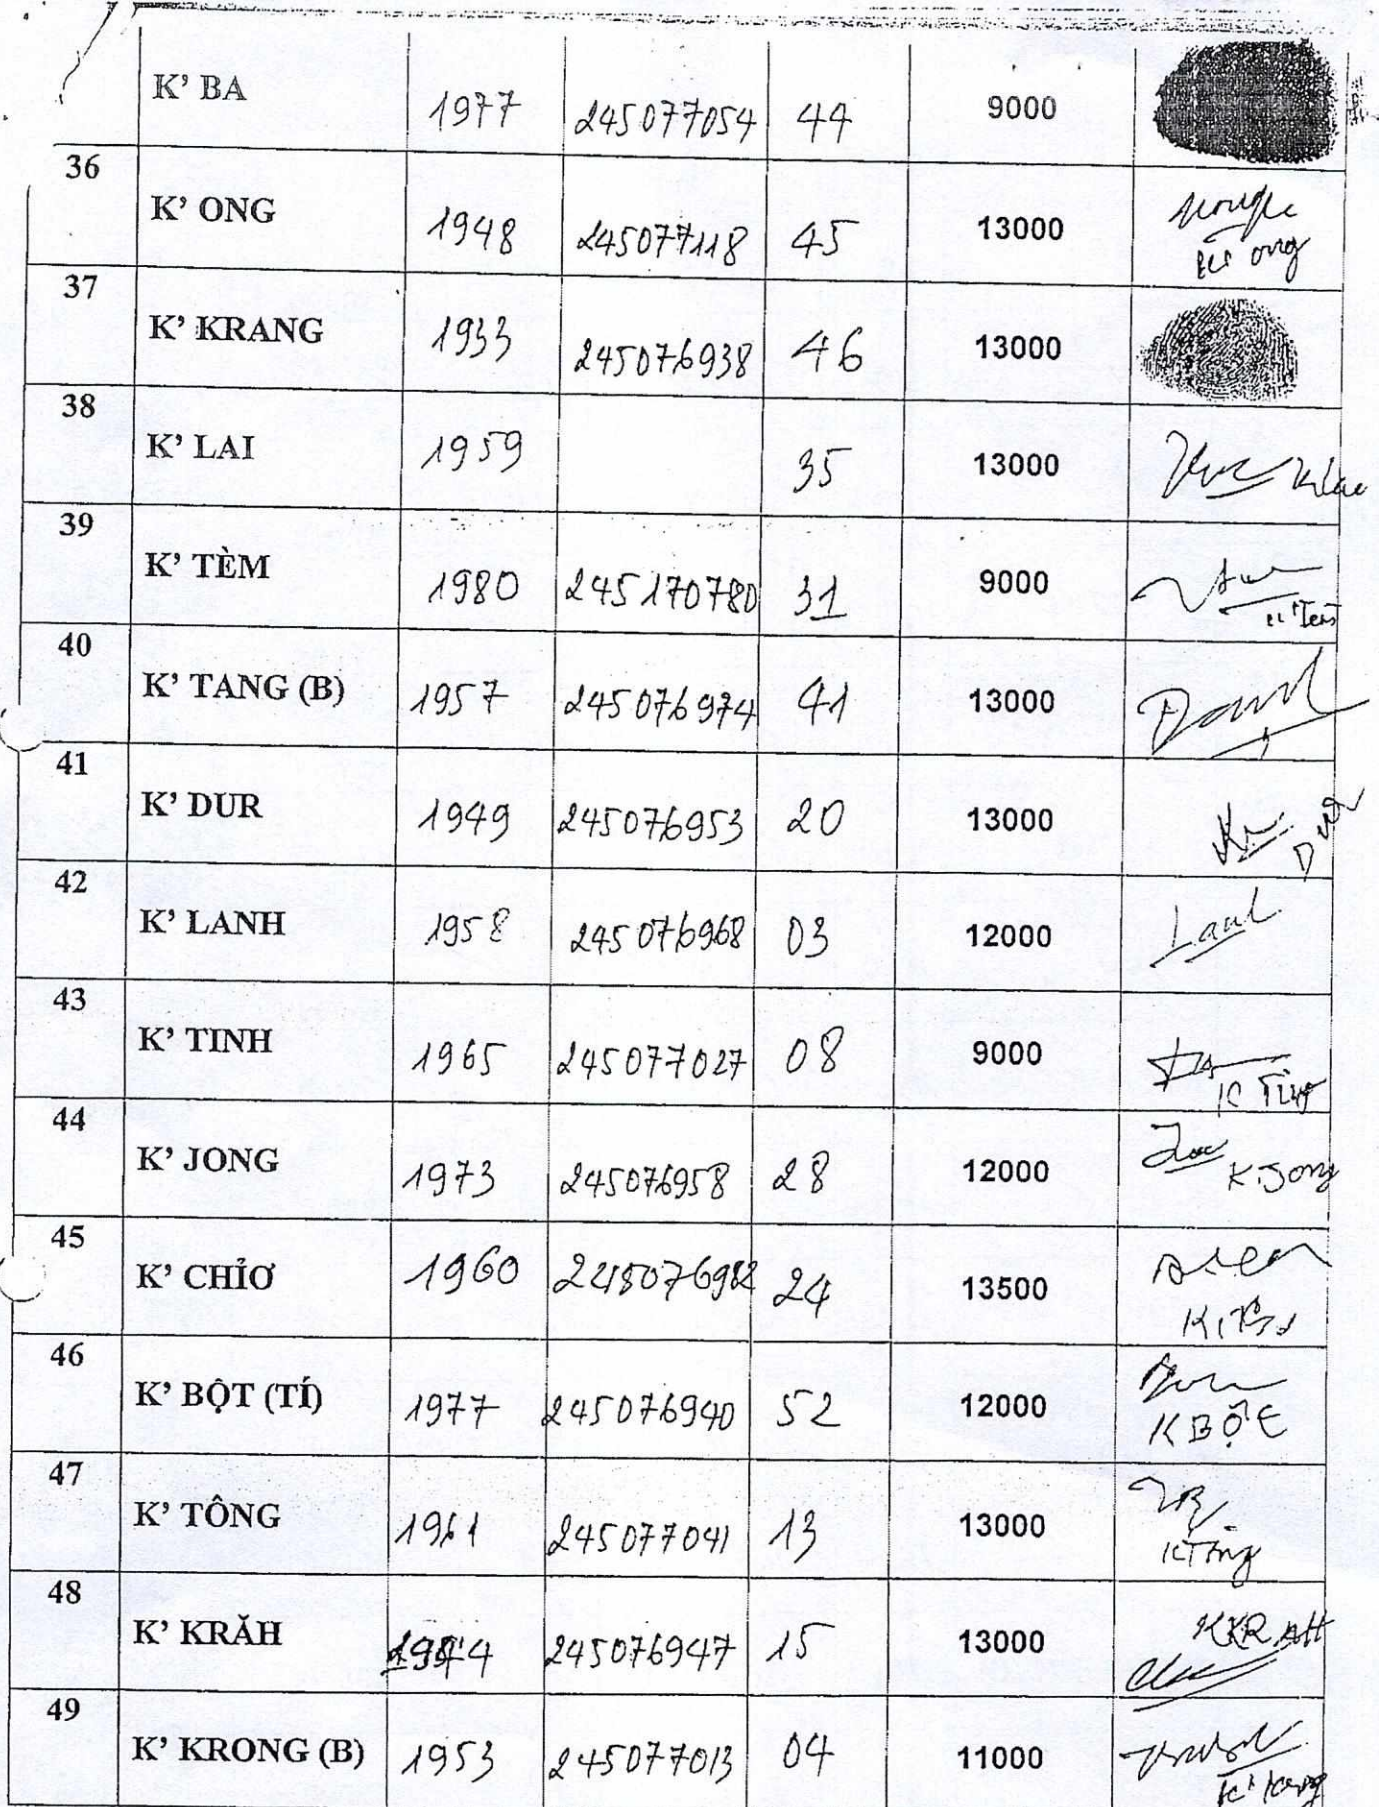 K' BA 1977 245077054 44 9000
36 K' ONG 1948 245077118 45 13000
K' ong
37 K' KRANG 1933 245076938 46 13000
38 K' LAI 1959 35 13000
39 K' TÈM 1980 245170780 31 9000
40 K' TANG (B) 1957 245076974 41 13000
41 K' DUR 1949 245076953 20 13000
42 K' LANH 1958 245076968 03 12000
43 K' TINH 1965 245077027 08 9000
44 K' JONG 1973 245076958 28 12000
K.Jong
45 K' CHỈƠ 1960 24 13500
46 K' BỘT (TÍ) 1977 245076940 52 12000
K BỘT
47 K' TÔNG 1961 245077041 13 13000
K Tông
48 K' KRĂH 245076947 15 13000
KKRAH
49 K' KRONG (B) 1953 245077013 04 11000